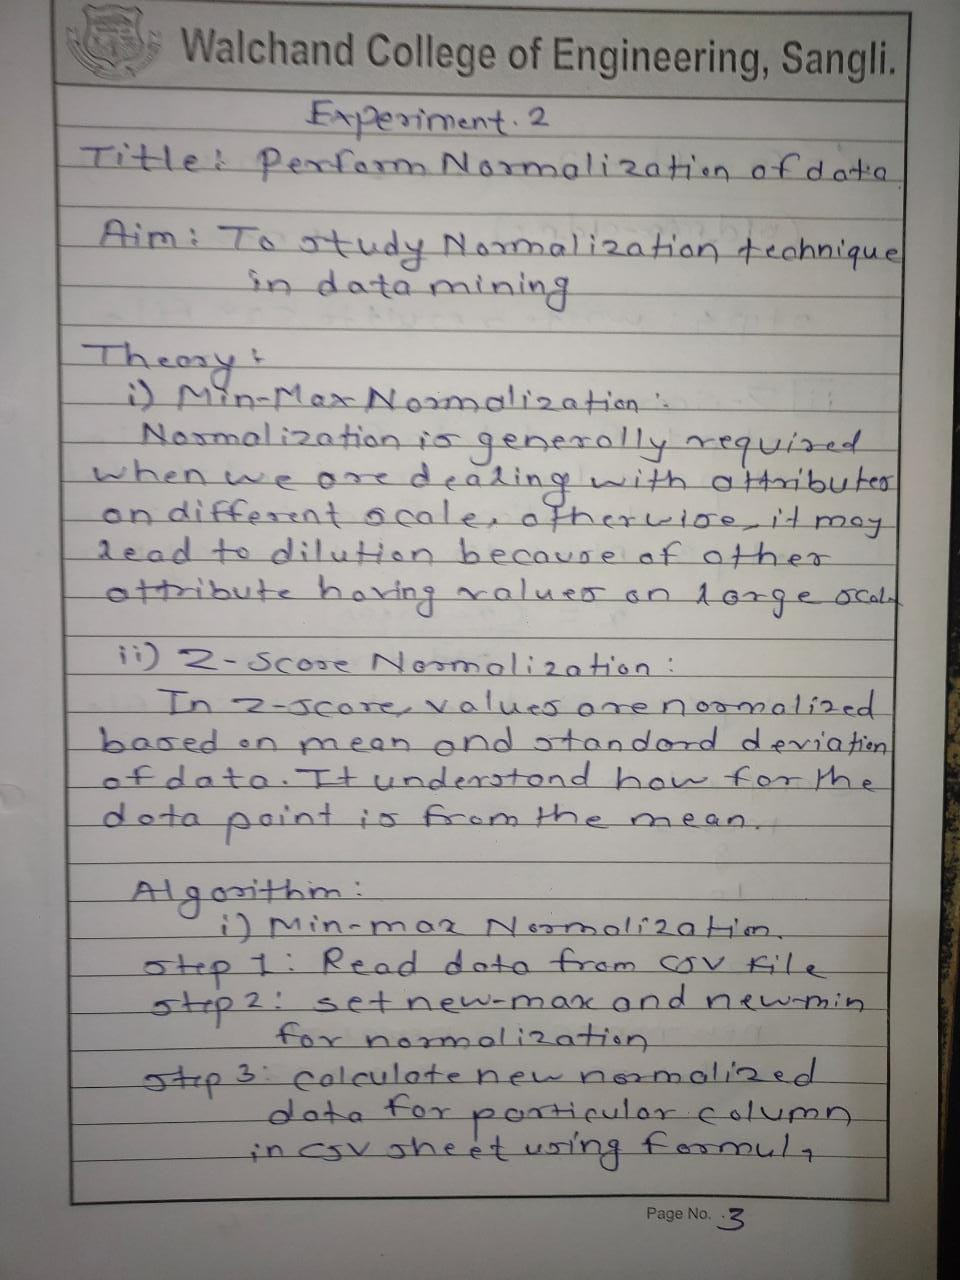 Walchand College of Engineering, Sangli.
Experiment. 2
Title: Perform Normalization of data
Aim: To study Normalization technique
in data mining
Theory:
i) Min-Max Normalization:
Normalization is generally required
when we are dealing with attributes
on different scale, otherwise, it may
lead to dilution because of other
attribute having values on large scale
ii) Z-Score Normalization:
In z-score, values are normalized
based on mean and standard deviation
of data. It understand how far the
data point is from the mean.
Algorithm:
i) Min-max Normalization.
step 1: Read data from csv file
step 2: set new-max and new-min
for normalization
step 3: calculate new normalized
data for particular column
in csv sheet using formula
Page No. 3